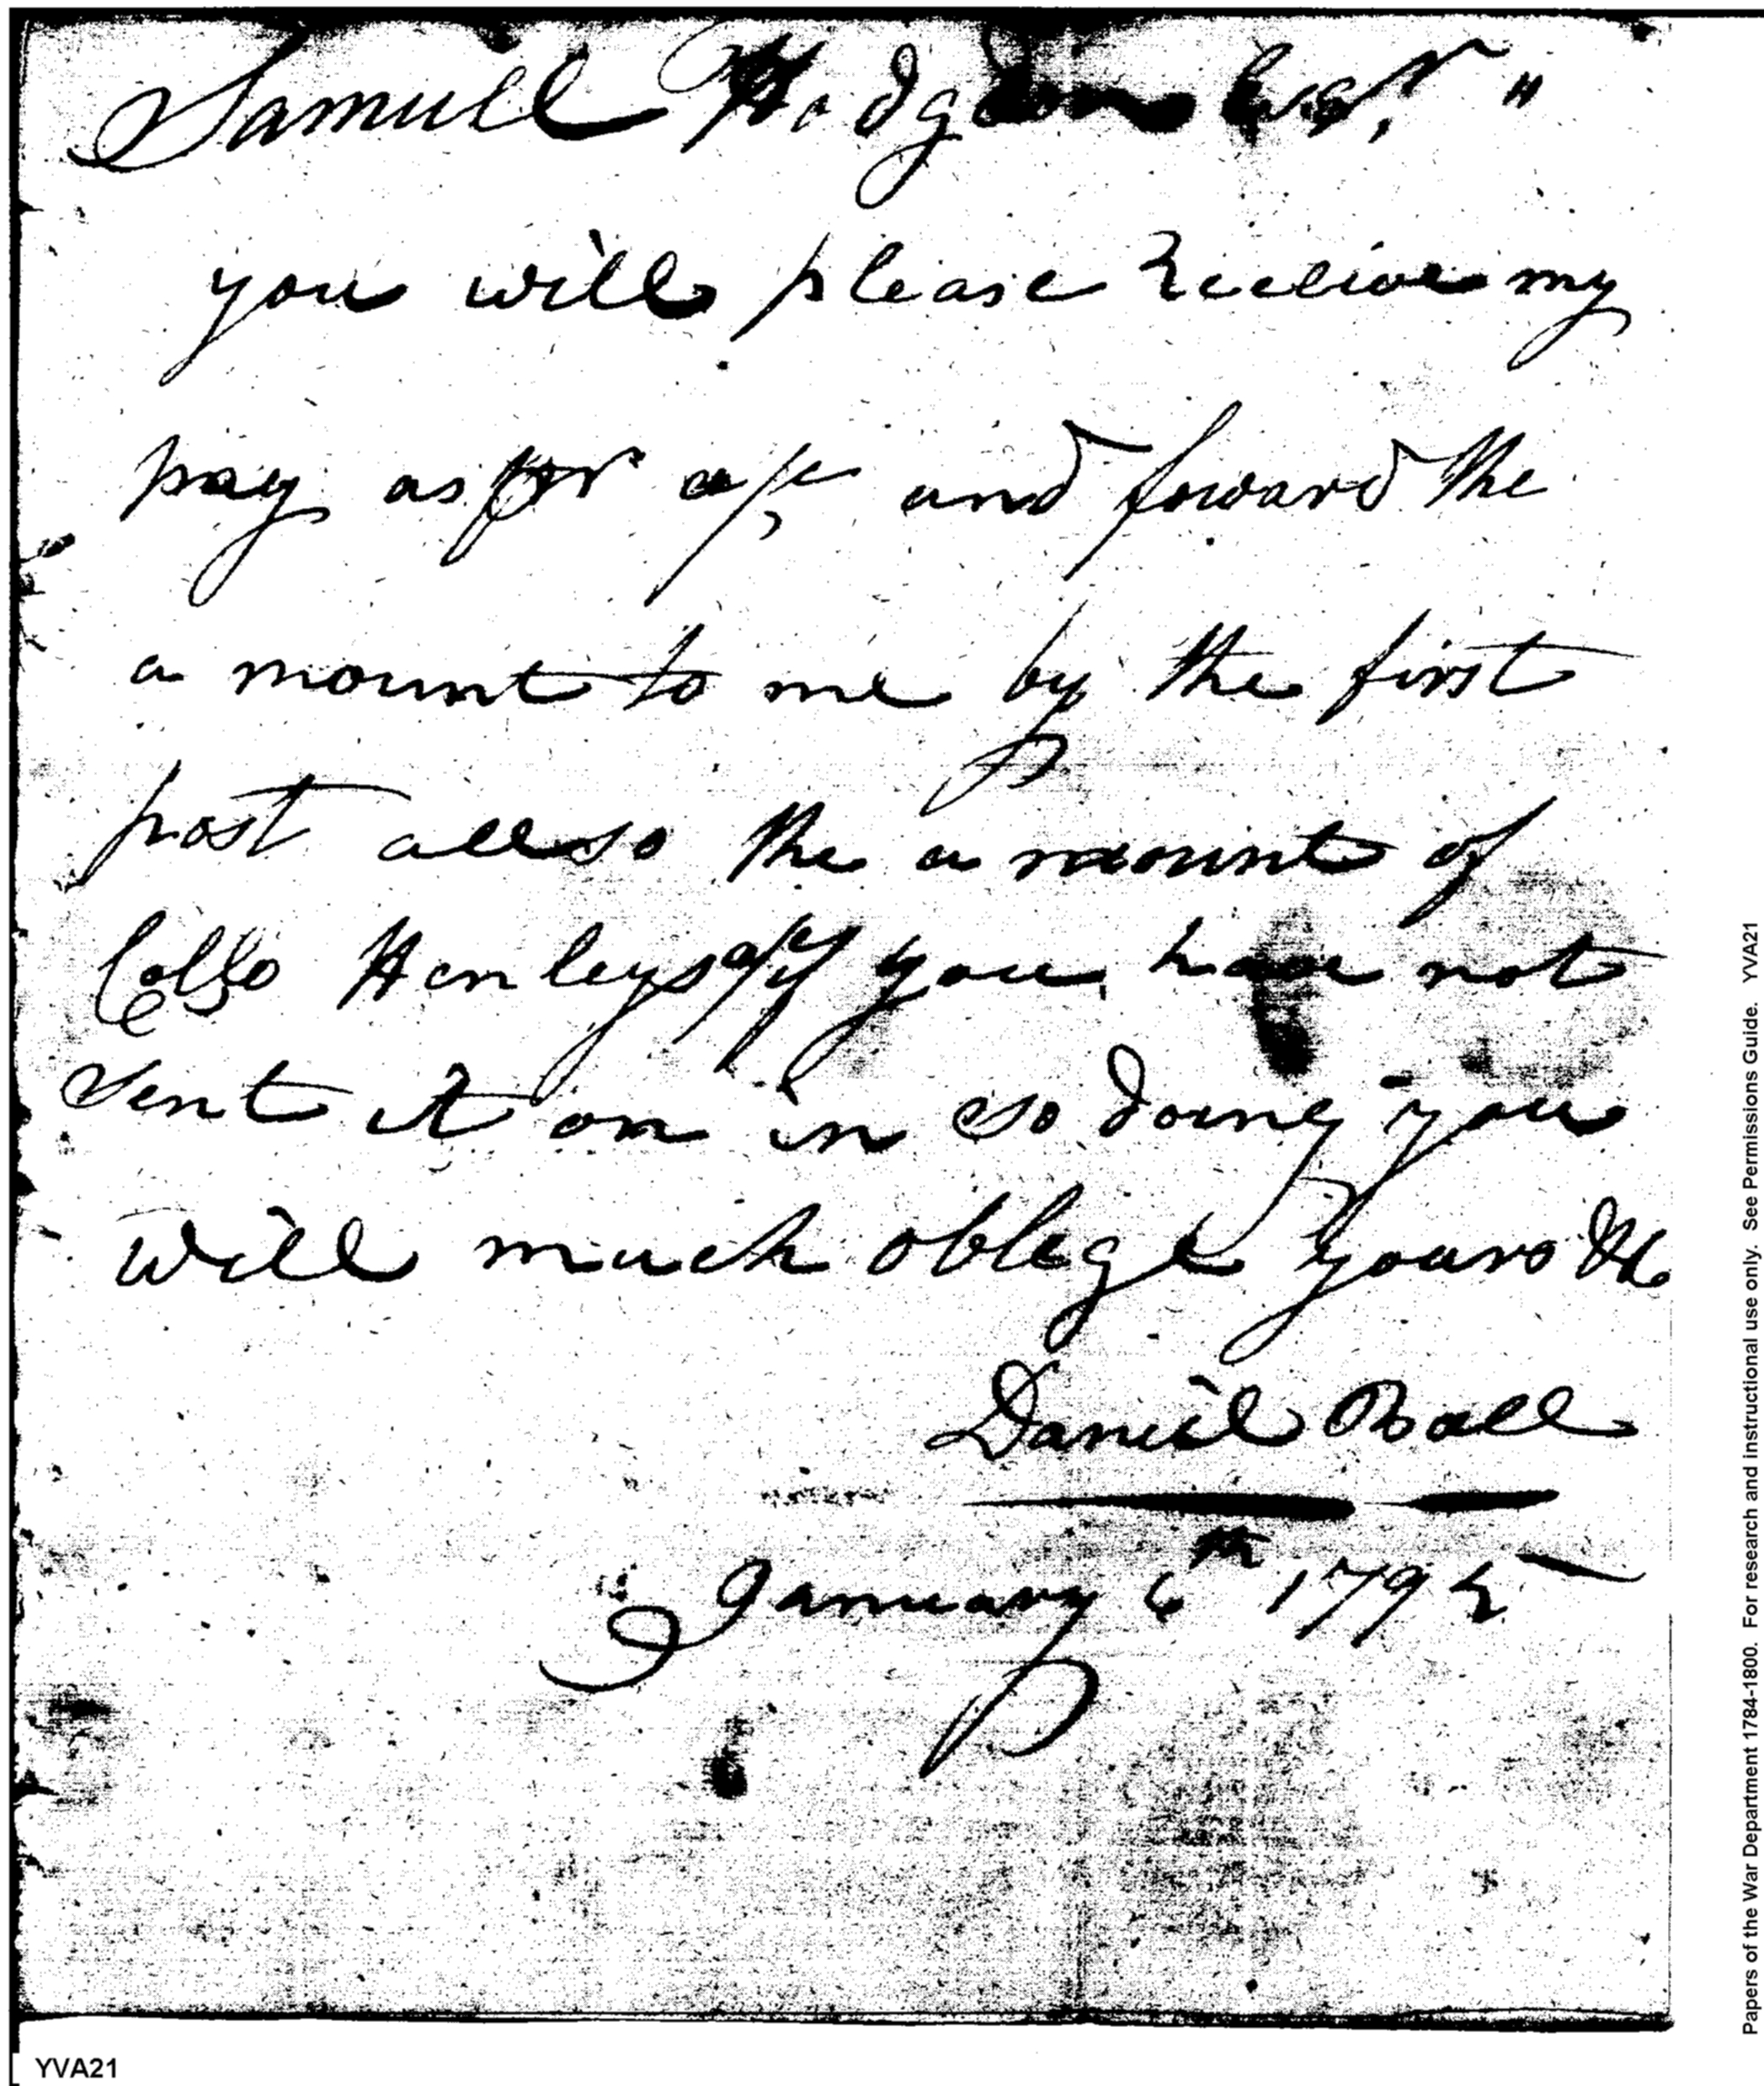 Samuell Hodgdon Esqr "
you will please Receive my
pay as pr a/c and foward the
a mount to me by the first
post allso the a mount of
Collo Henleys a/c if you have not
sent it on in so doing you
will much oblege yours &c
Daniel Ball
January 6th 1795
Papers of the War Department 1784-1800. For research and instructional use only. See Permissions Guide. YVA21
YVA21